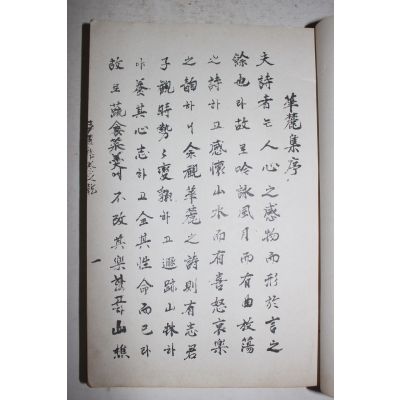 華麓集序
夫詩者는人心之感物而形於言之
餘也라故로吟詠風月而有曲放蕩
之詩하고感懷山水而有喜怒哀樂
之韵하니余觀華麓之詩則有志君
子觀時勢之變難하고遯跡山林하
야養其心志하고全其性命而已라
故로蔬食菜羹에不改其樂하고山樵
一